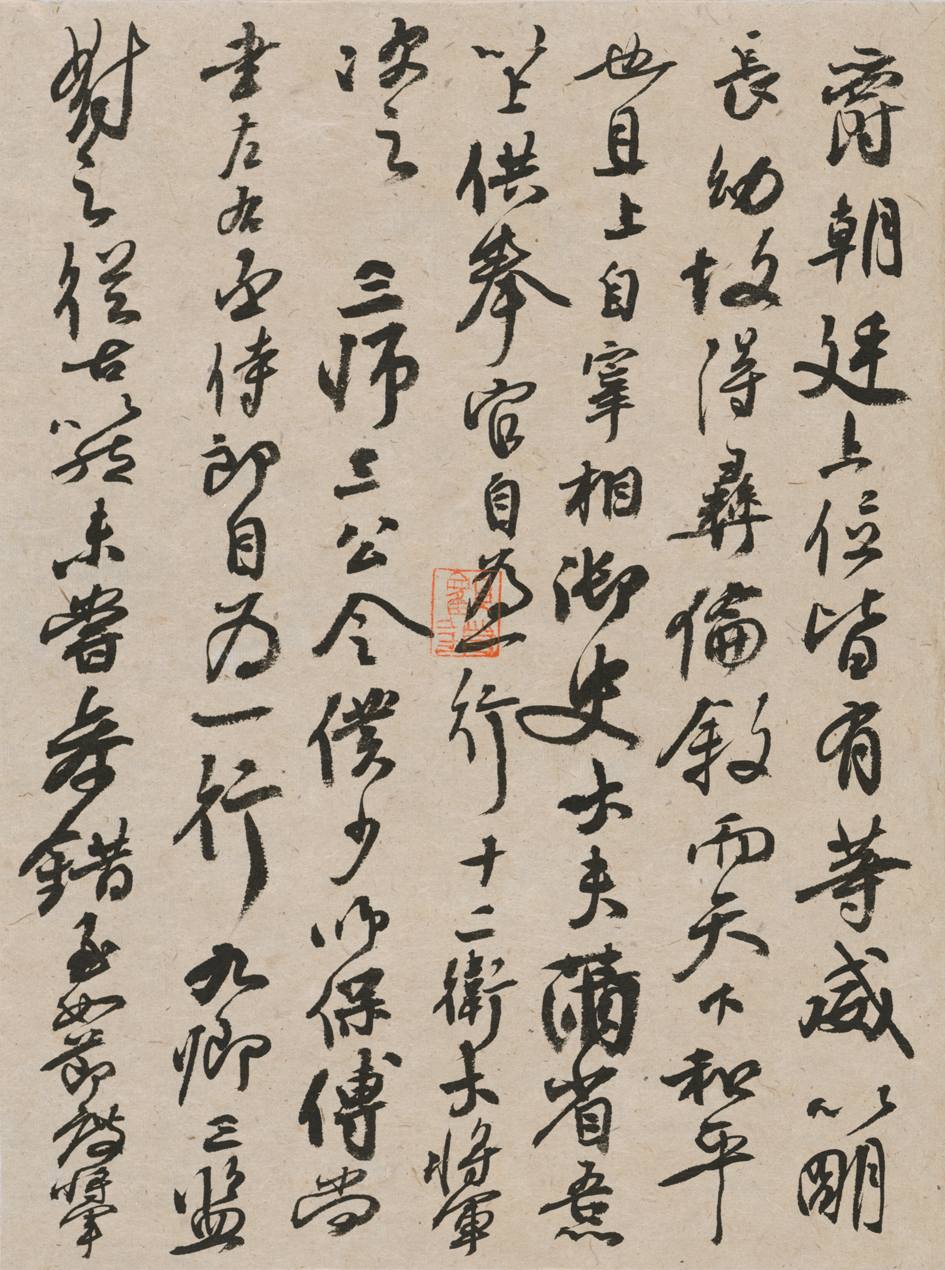 爵朝廷上位皆有等威以明
長幼故得彝倫敘而天下和平
也且上自宰相御史大夫兩省五品
以上供奉官自為一行十二衛大將軍
次之 三師三公令僕少師保傅尚
書左右丞侍郎自為一行九卿三監
對之從古以然未嘗參錯至如節度將軍